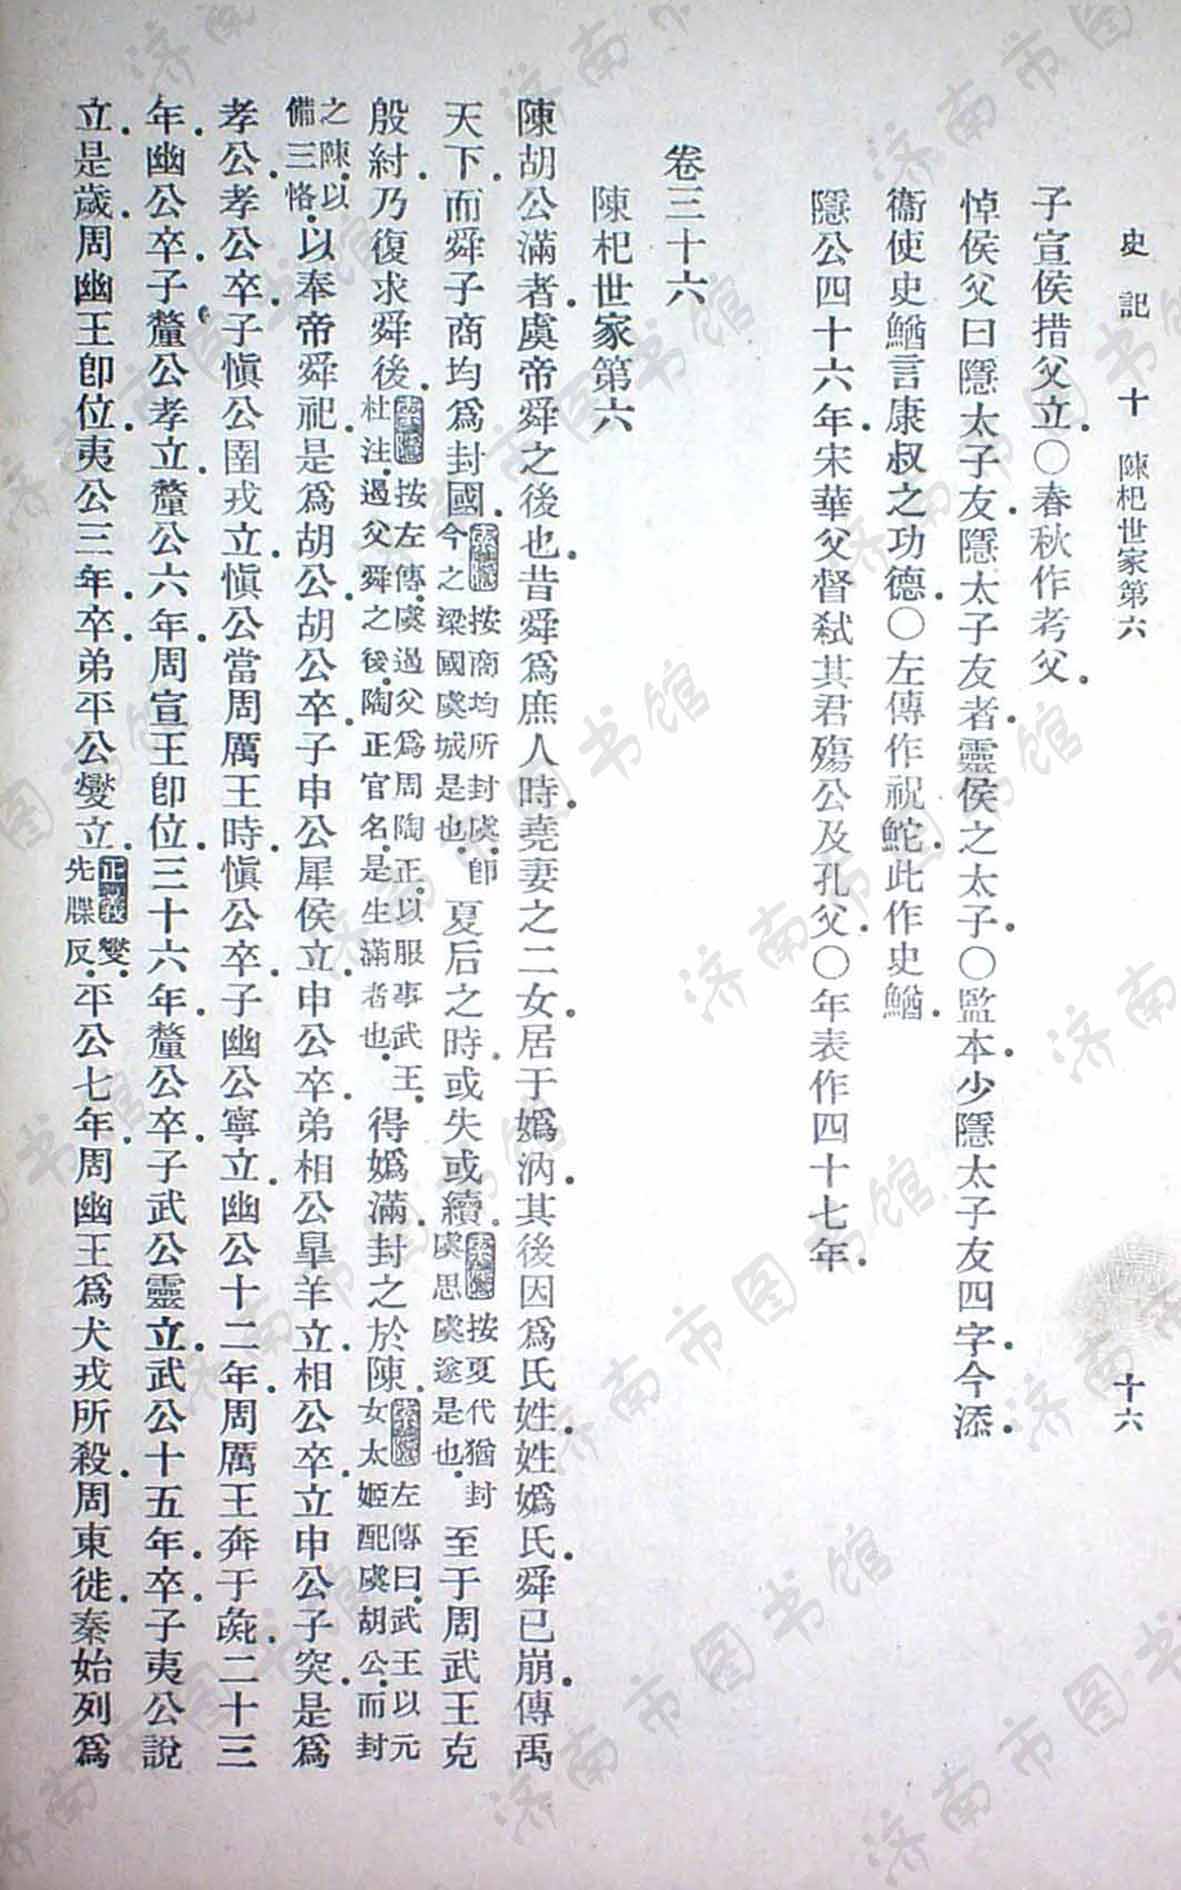 史記 十 陳杞世家第六 十六
子宣侯措父立○春秋作考父。
悼侯父曰隱太子友。隱太子友者。靈侯之太子。○監本少隱太子友四字。今添。
衞使史鰌言康叔之功德。○左傳作祝鮀。此作史鰌。
隱公四十六年。宋華父督弒其君殤公及孔父。○年表作四十七年。
卷三十六
陳杞世家第六
陳胡公滿者。虞帝舜之後也。昔舜爲庶人時。堯妻之二女。居于嬀汭。其後因爲氏姓。姓嬀氏。舜已崩。傳禹
天下。而舜子商均爲封國。索隱按商均所封虞。卽今之梁國虞城是也。夏后之時。或失或續。索隱按夏代猶封虞思虞遂是也。至于周武王克
殷紂。乃復求舜後。索隱按左傳。虞遏父爲周陶正。以服事武王。杜注。遏父舜之後。陶正官名。是生滿者也。得嬀滿。封之於陳。索隱左傳曰。武王以元女太姬配虞胡公。而封
之陳。以備三恪。以奉帝舜祀。是爲胡公。胡公卒。子申公犀侯立。申公卒。弟相公臯羊立。相公卒。立申公子突。是爲
孝公。孝公卒。子愼公圉戎立。愼公當周厲王時。愼公卒。子幽公寧立。幽公十二年。周厲王奔于彘。二十三
年。幽公卒。子釐公孝立。釐公六年。周宣王卽位。三十六年。釐公卒。子武公靈立。武公十五年。卒。子夷公說
立。是歲。周幽王卽位。夷公三年。卒。弟平公燮立。正義燮。先牒反。平公七年。周幽王爲犬戎所殺。周東徙。秦始列爲